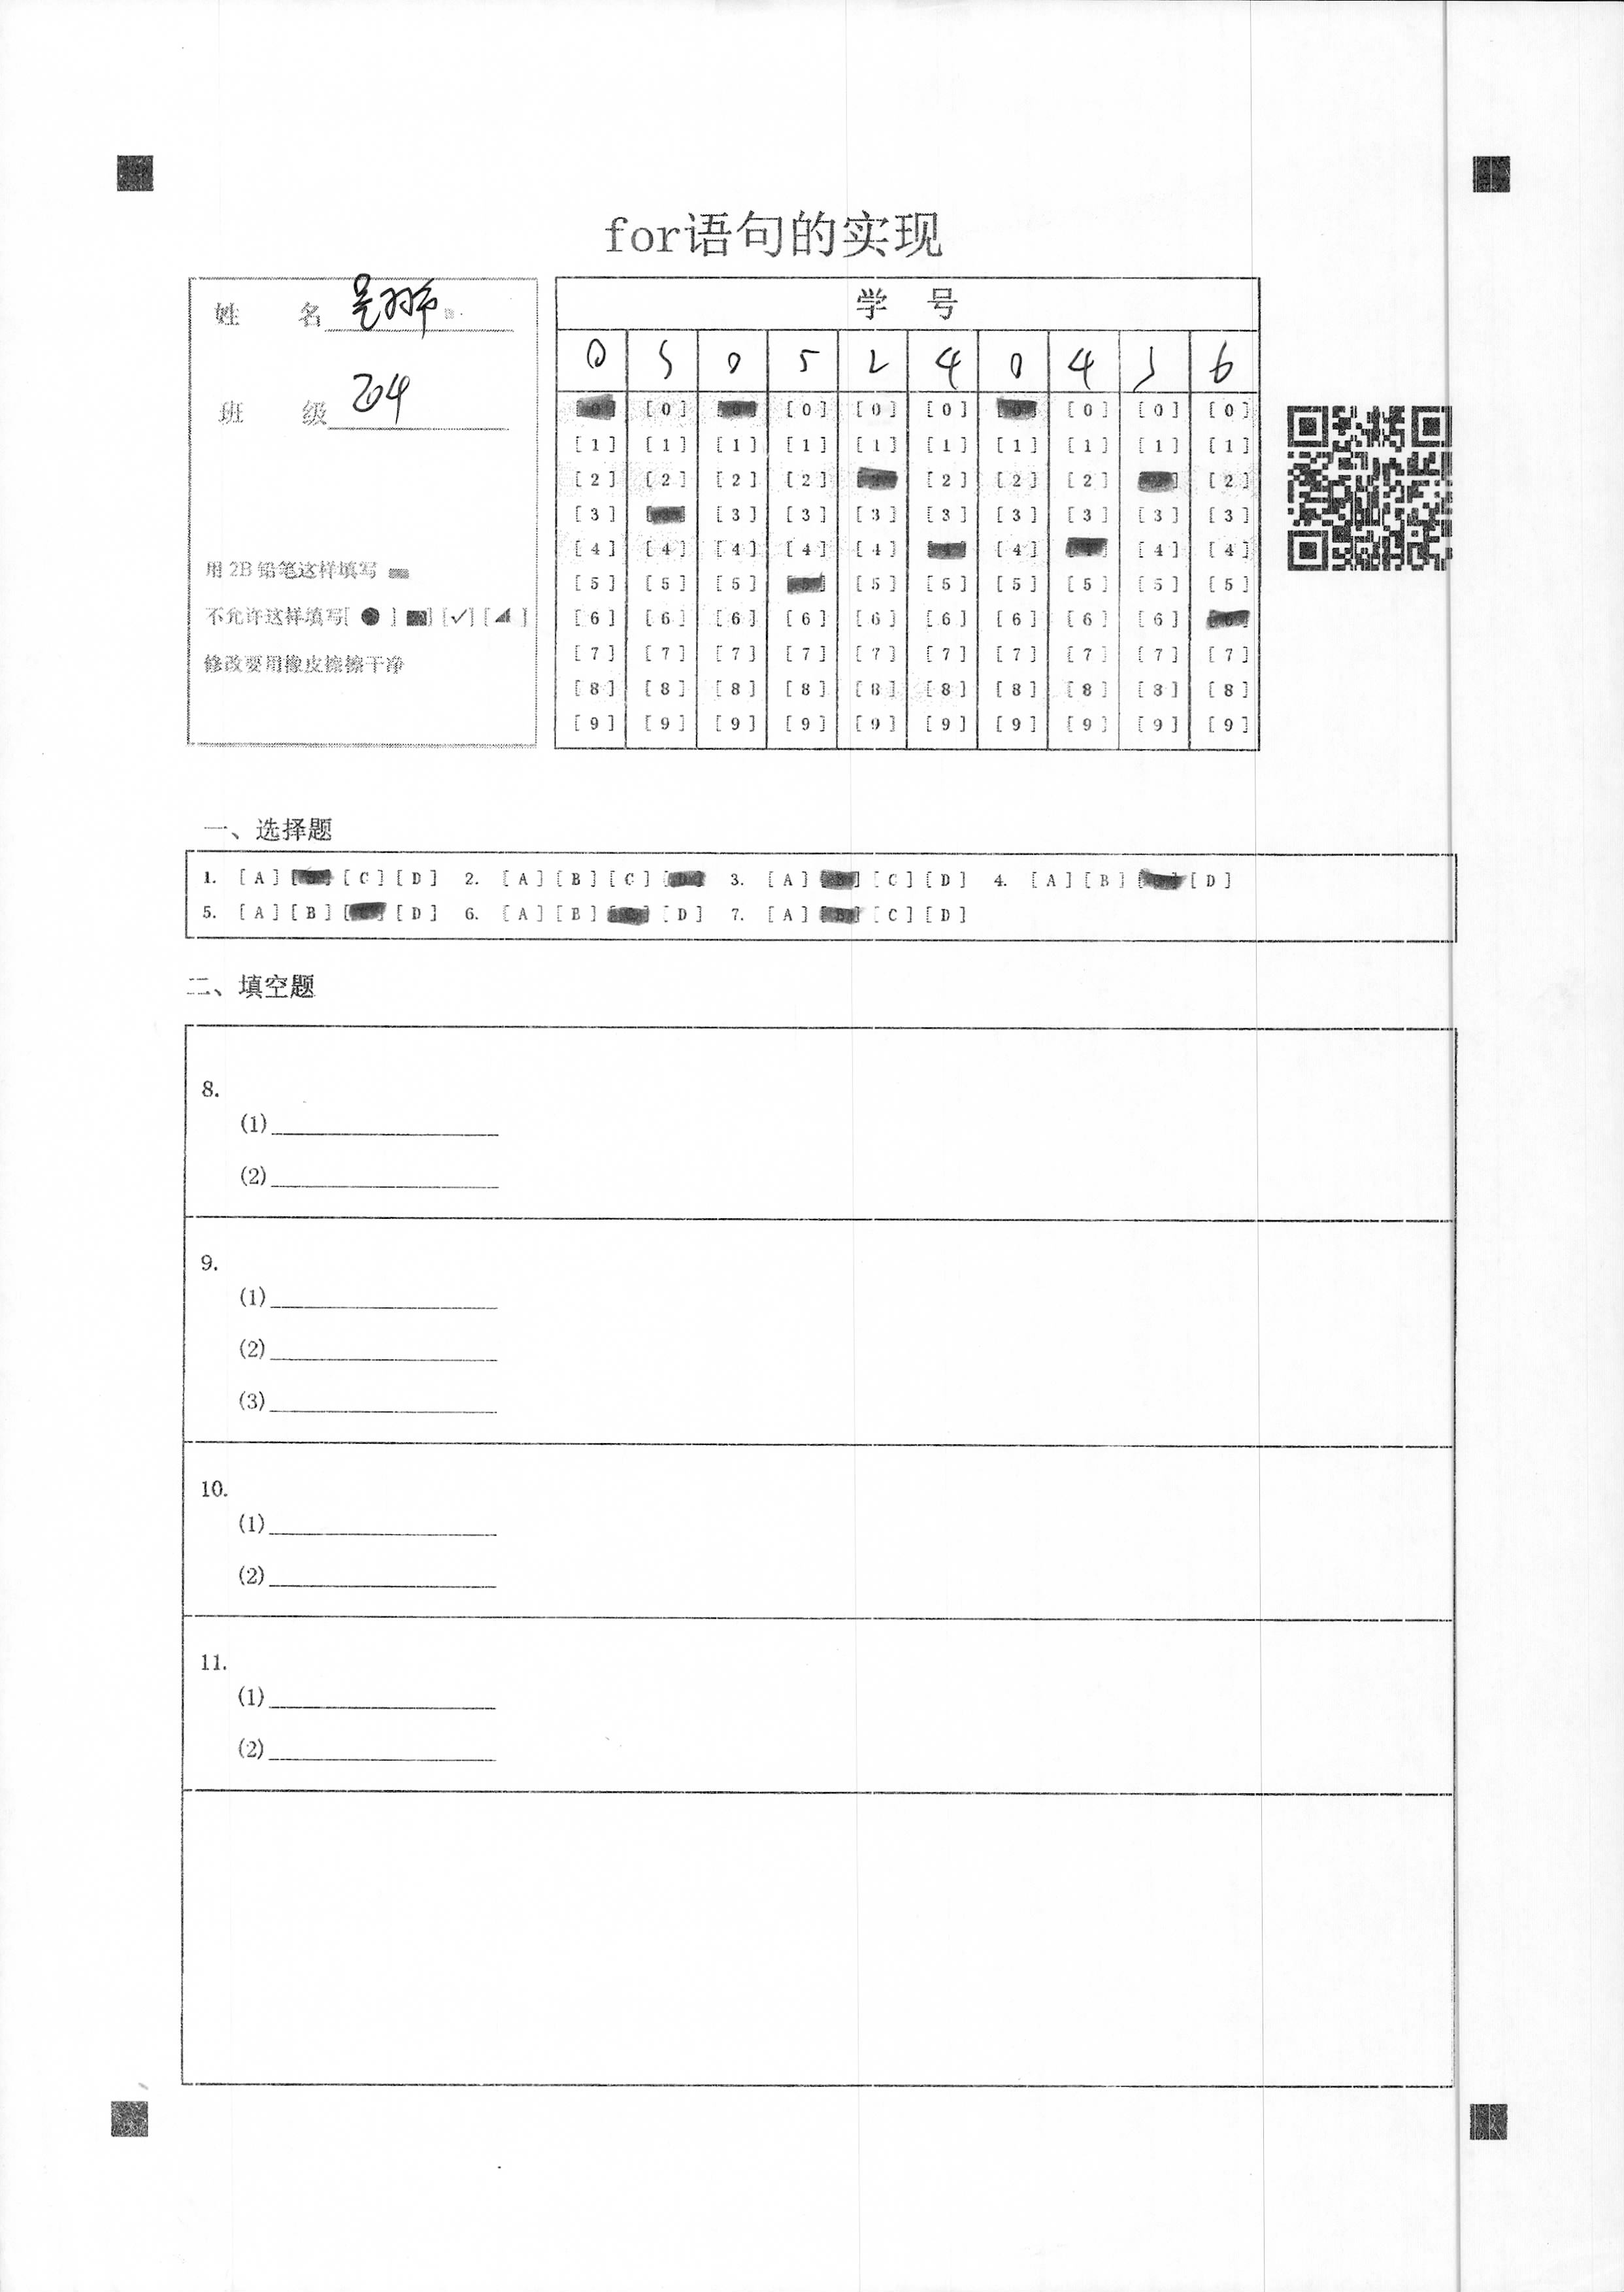 for语句的实现
姓 名
班 级 204
用 2B 铅笔这样填写
不允许这样填写[ ● ] [■] [✓] [◢ ]
修改要用橡皮擦擦干净
学 号
0 5 2 4 0 4 6
[0] [0] [0] [0] [0] [0] [0]
[1] [1] [1] [1] [1] [1] [1] [1] [1] [1]
[2] [2] [2] [2] [2] [2] [2] [2]
[3] [3] [3] [3] [3] [3] [3] [3] [3]
[4] [4] [4] [4] [4] [4] [4] [4]
[5] [5] [5] [5] [5] [5] [5] [5] [5]
[6] [6] [6] [6] [6] [6] [6] [6] [6]
[7] [7] [7] [7] [7] [7] [7] [7] [7] [7]
[8] [8] [8] [8] [8] [8] [8] [8] [8] [8]
[9] [9] [9] [9] [9] [9] [9] [9] [9] [9]
一、选择题
1. [A] [C] [D] 2. [A] [B] [C] 3. [A] [C] [D] 4. [A] [B] [D]
5. [A] [B] [D] 6. [A] [B] [D] 7. [A] [C] [D]
二、填空题
8.
(1)
(2)
9.
(1)
(2)
(3)
10.
(1)
(2)
11.
(1)
(2)